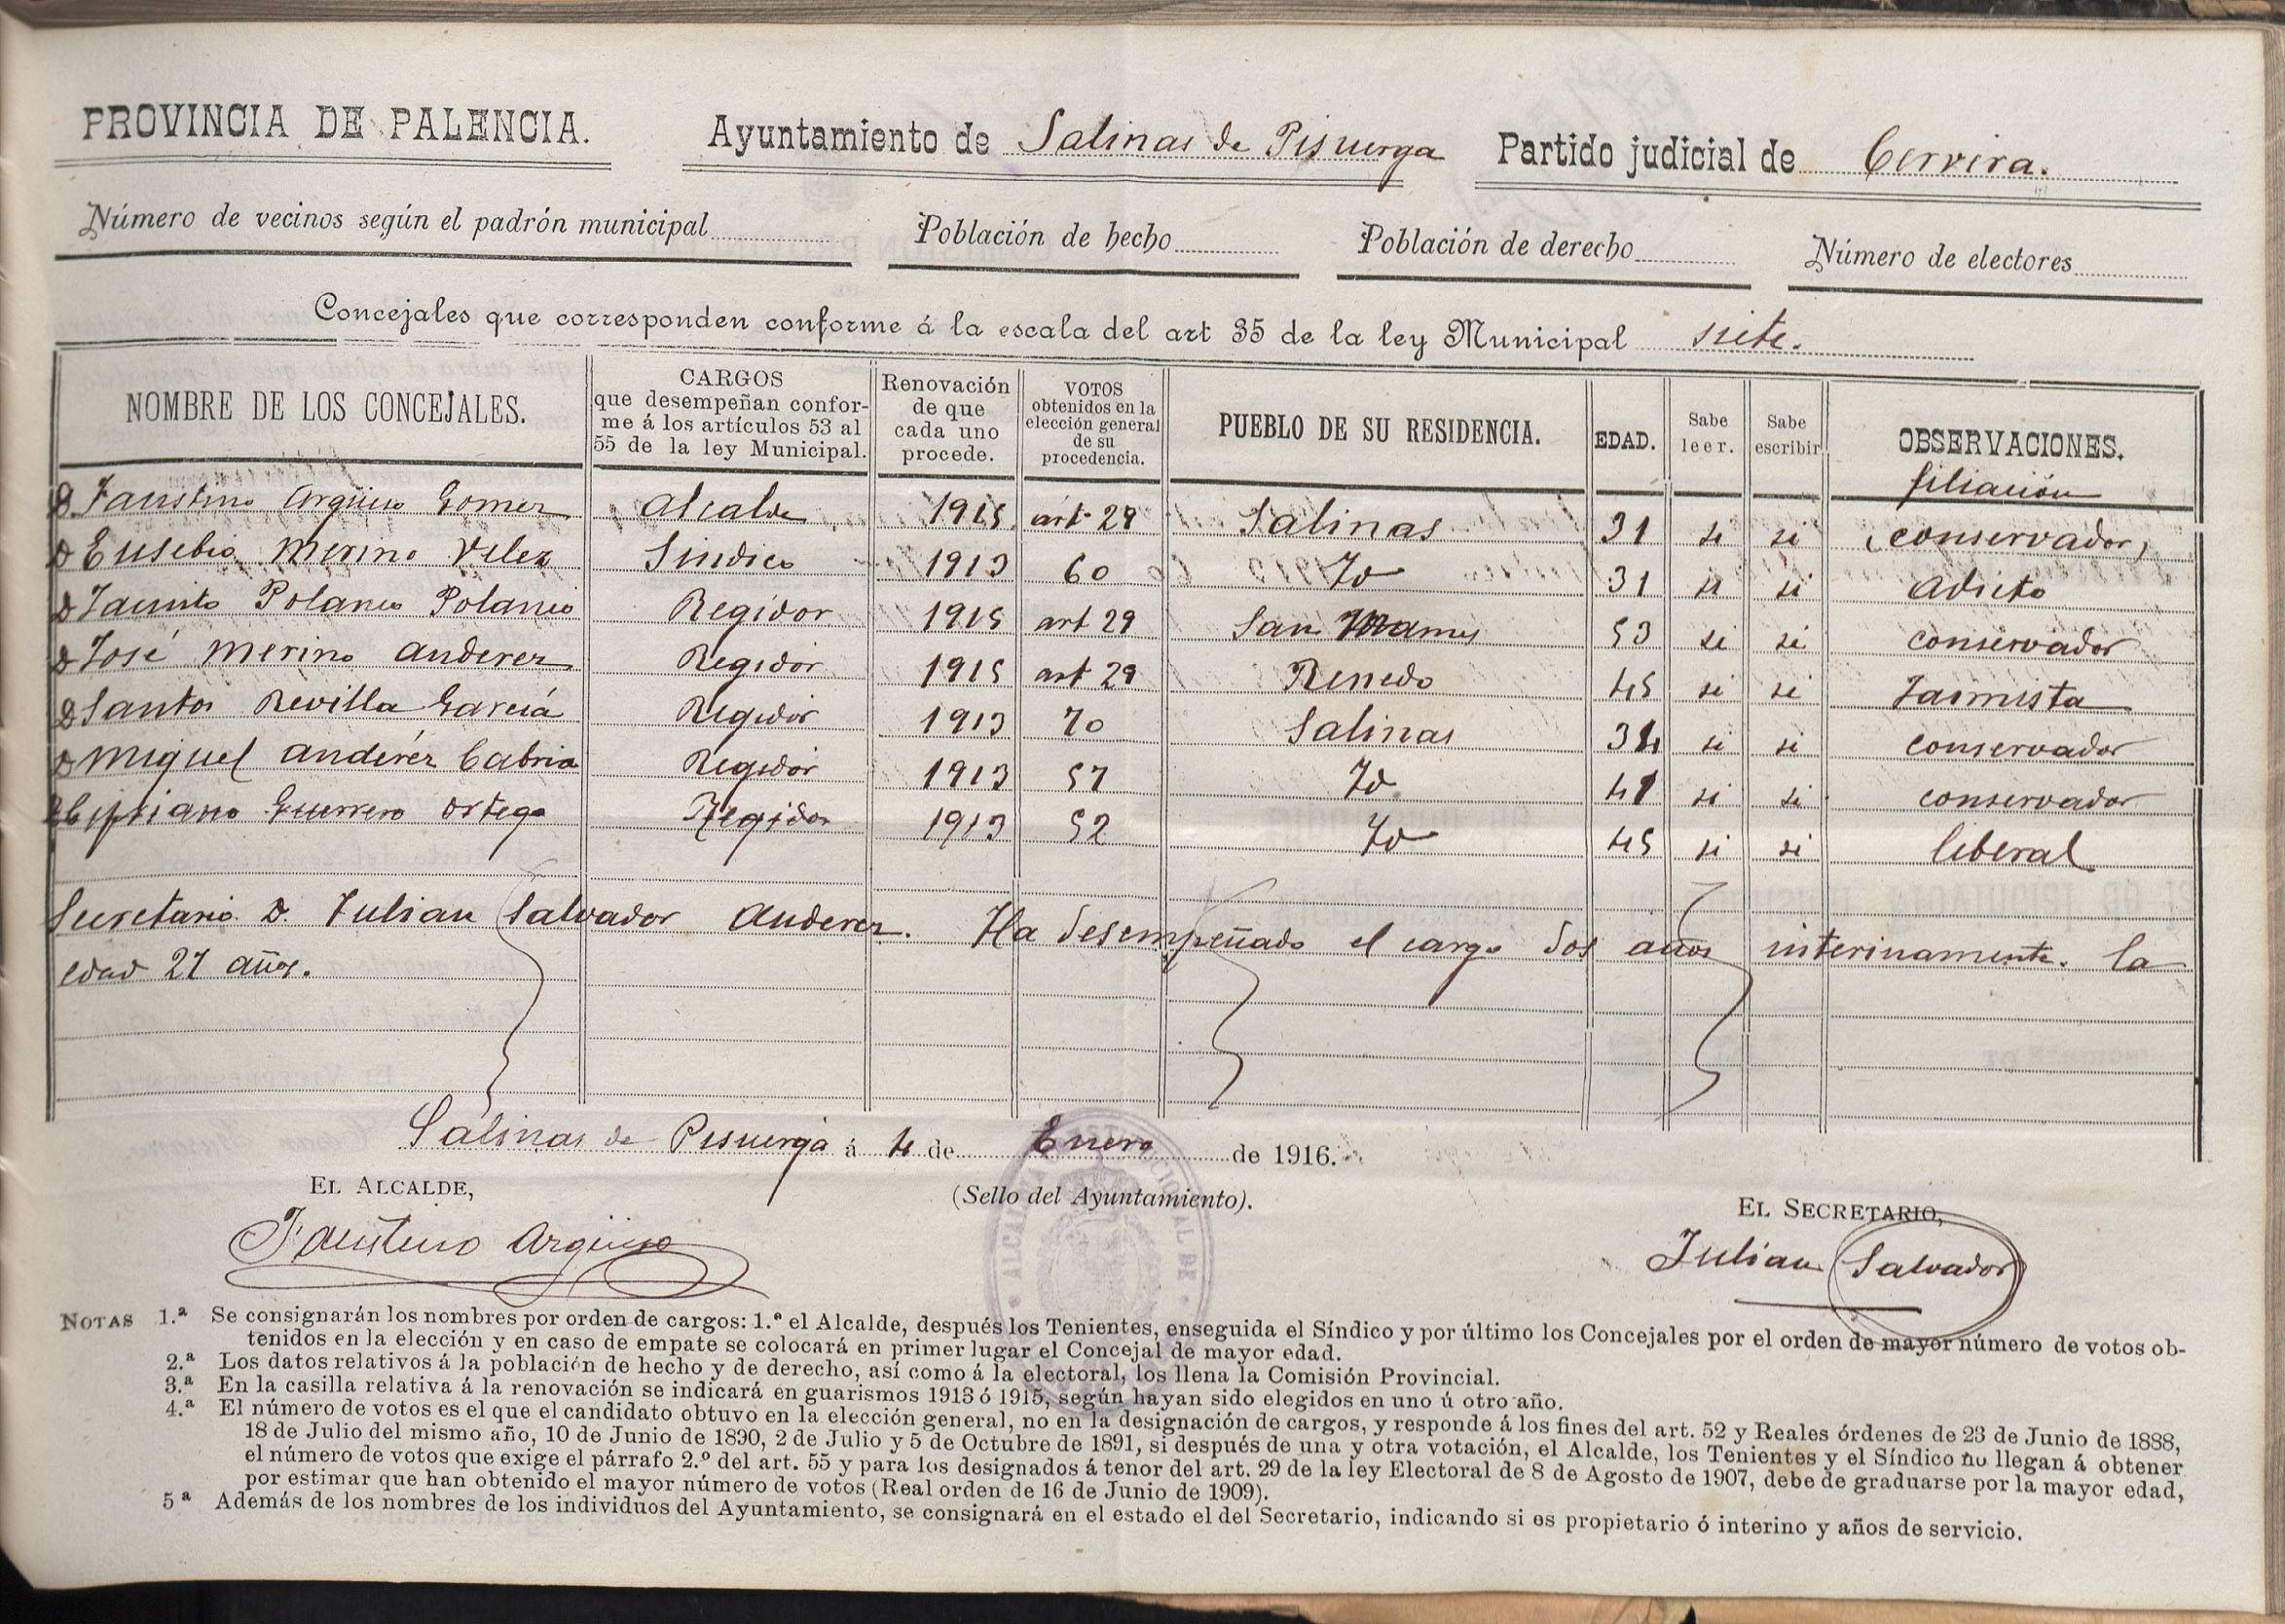 PROVINCIA DE PALENCIA. Ayuntamiento de Salinas de Pisuerga Partido judicial de Cervera.
Número de vecinos según el padrón municipal Población de hecho Población de derecho Número de electores
Concejales que corresponden conforme á la escala del art 35 de la ley Municipal siete.
NOMBRE DE LOS CONCEJALES. CARGOS que desempeñan confor- me á los artículos 53 al 55 de la ley Municipal. Renovación de que cada uno procede. VOTOS obtenidos en la elección general de su procedencia. PUEBLO DE SU RESIDENCIA. EDAD. Sabe leer. Sabe escribir OBSERVACIONES.
filiación
D. Faustino Argüeso Gomez Alcalde 1915 art 29 Salinas 31 si si conservador
D Eusebio Merino Velez Sindico 1913 60 Id 31 si si Adicto
D Jacinto Polanco Polanco Regidor 1915 art 29 San Mames 53 si si conservador
D José Merino Anderez Regidor 1915 art 29 Renedo 45 si si Jaimista
D Santos Revilla García Regidor 1913 70 Salinas 34 si si conservador
D Miguel Andérez Cabria Regidor 1913 57 Id 41 si si conservador
D Cipriano Guerrero Ortega Regidor 1913 52 Id 45 si si liberal
Secretario D. Julian Salvador Anderez. Ha desempeñado el cargo dos años interinamente. la
edad 27 años.
Salinas de Pisuerga á 4 de Enero de 1916.
EL ALCALDE, (Sello del Ayuntamiento). EL SECRETARIO,
Faustino Argüeso Julian Salvador
ALCALDIA CONSTITUCIONAL DE
NOTAS 1.ª Se consignarán los nombres por orden de cargos: 1.º el Alcalde, después los Tenientes, enseguida el Síndico y por último los Concejales por el orden de mayor número de votos ob-
tenidos en la elección y en caso de empate se colocará en primer lugar el Concejal de mayor edad.
2.ª Los datos relativos á la población de hecho y de derecho, así como á la electoral, los llena la Comisión Provincial.
3.ª En la casilla relativa á la renovación se indicará en guarismos 1913 ó 1915, según hayan sido elegidos en uno ú otro año.
4.ª El número de votos es el que el candidato obtuvo en la elección general, no en la designación de cargos, y responde á los fines del art. 52 y Reales órdenes de 23 de Junio de 1888,
18 de Julio del mismo año, 10 de Junio de 1890, 2 de Julio y 5 de Octubre de 1891, si después de una y otra votación, el Alcalde, los Tenientes y el Síndico no llegan á obtener
el número de votos que exige el párrafo 2.º del art. 55 y para los designados á tenor del art. 29 de la ley Electoral de 8 de Agosto de 1907, debe de graduarse por la mayor edad,
por estimar que han obtenido el mayor número de votos (Real orden de 16 de Junio de 1909).
5ª Además de los nombres de los individuos del Ayuntamiento, se consignará en el estado el del Secretario, indicando si es propietario ó interino y años de servicio.